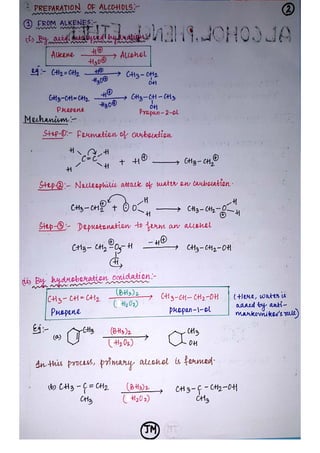 PREPARATION OF ALCOHOLS:-
②
① FROM ALKENES:-
(i) By acid catalysed hydration:-
Alkene —H⊕/H3O⊕→ Alcohol
eg:- CH2=CH2 —H⊕/H3O⊕→ CH3-CH2
OH
CH3-CH=CH2 —H⊕/H3O⊕→ CH3-CH-CH3
OH
Propene Propan-2-ol
Mechanism:-
Step-①:- Formation of carbocation
H H
C=C + H⊕ → CH3-CH2⊕
H H
Step-②:- Nucleophilic attack of water on carbocation.
CH3-CH2⊕ + O H H → CH3-CH2-O⊕ H H
Step-③:- Deprotonation to form an alcohol
CH3-CH2-O-H —-H⊕→ CH3-CH2-OH
H
(ii) By hydroboration oxidation:-
CH3-CH=CH2 —(BH3)2/(H2O2)→ CH3-CH-CH2-OH
Propene propan-1-ol
(Here, water is
added by anti-
markovnikov's rule)
Eg:-
(a) CH3 —(BH3)2/(H2O2)→ CH3
OH
In this process, primary alcohol is formed.
(b) CH3-C=CH2 —(BH3)2/(H2O2)→ CH3-C-CH2-OH
CH3 CH3
JM